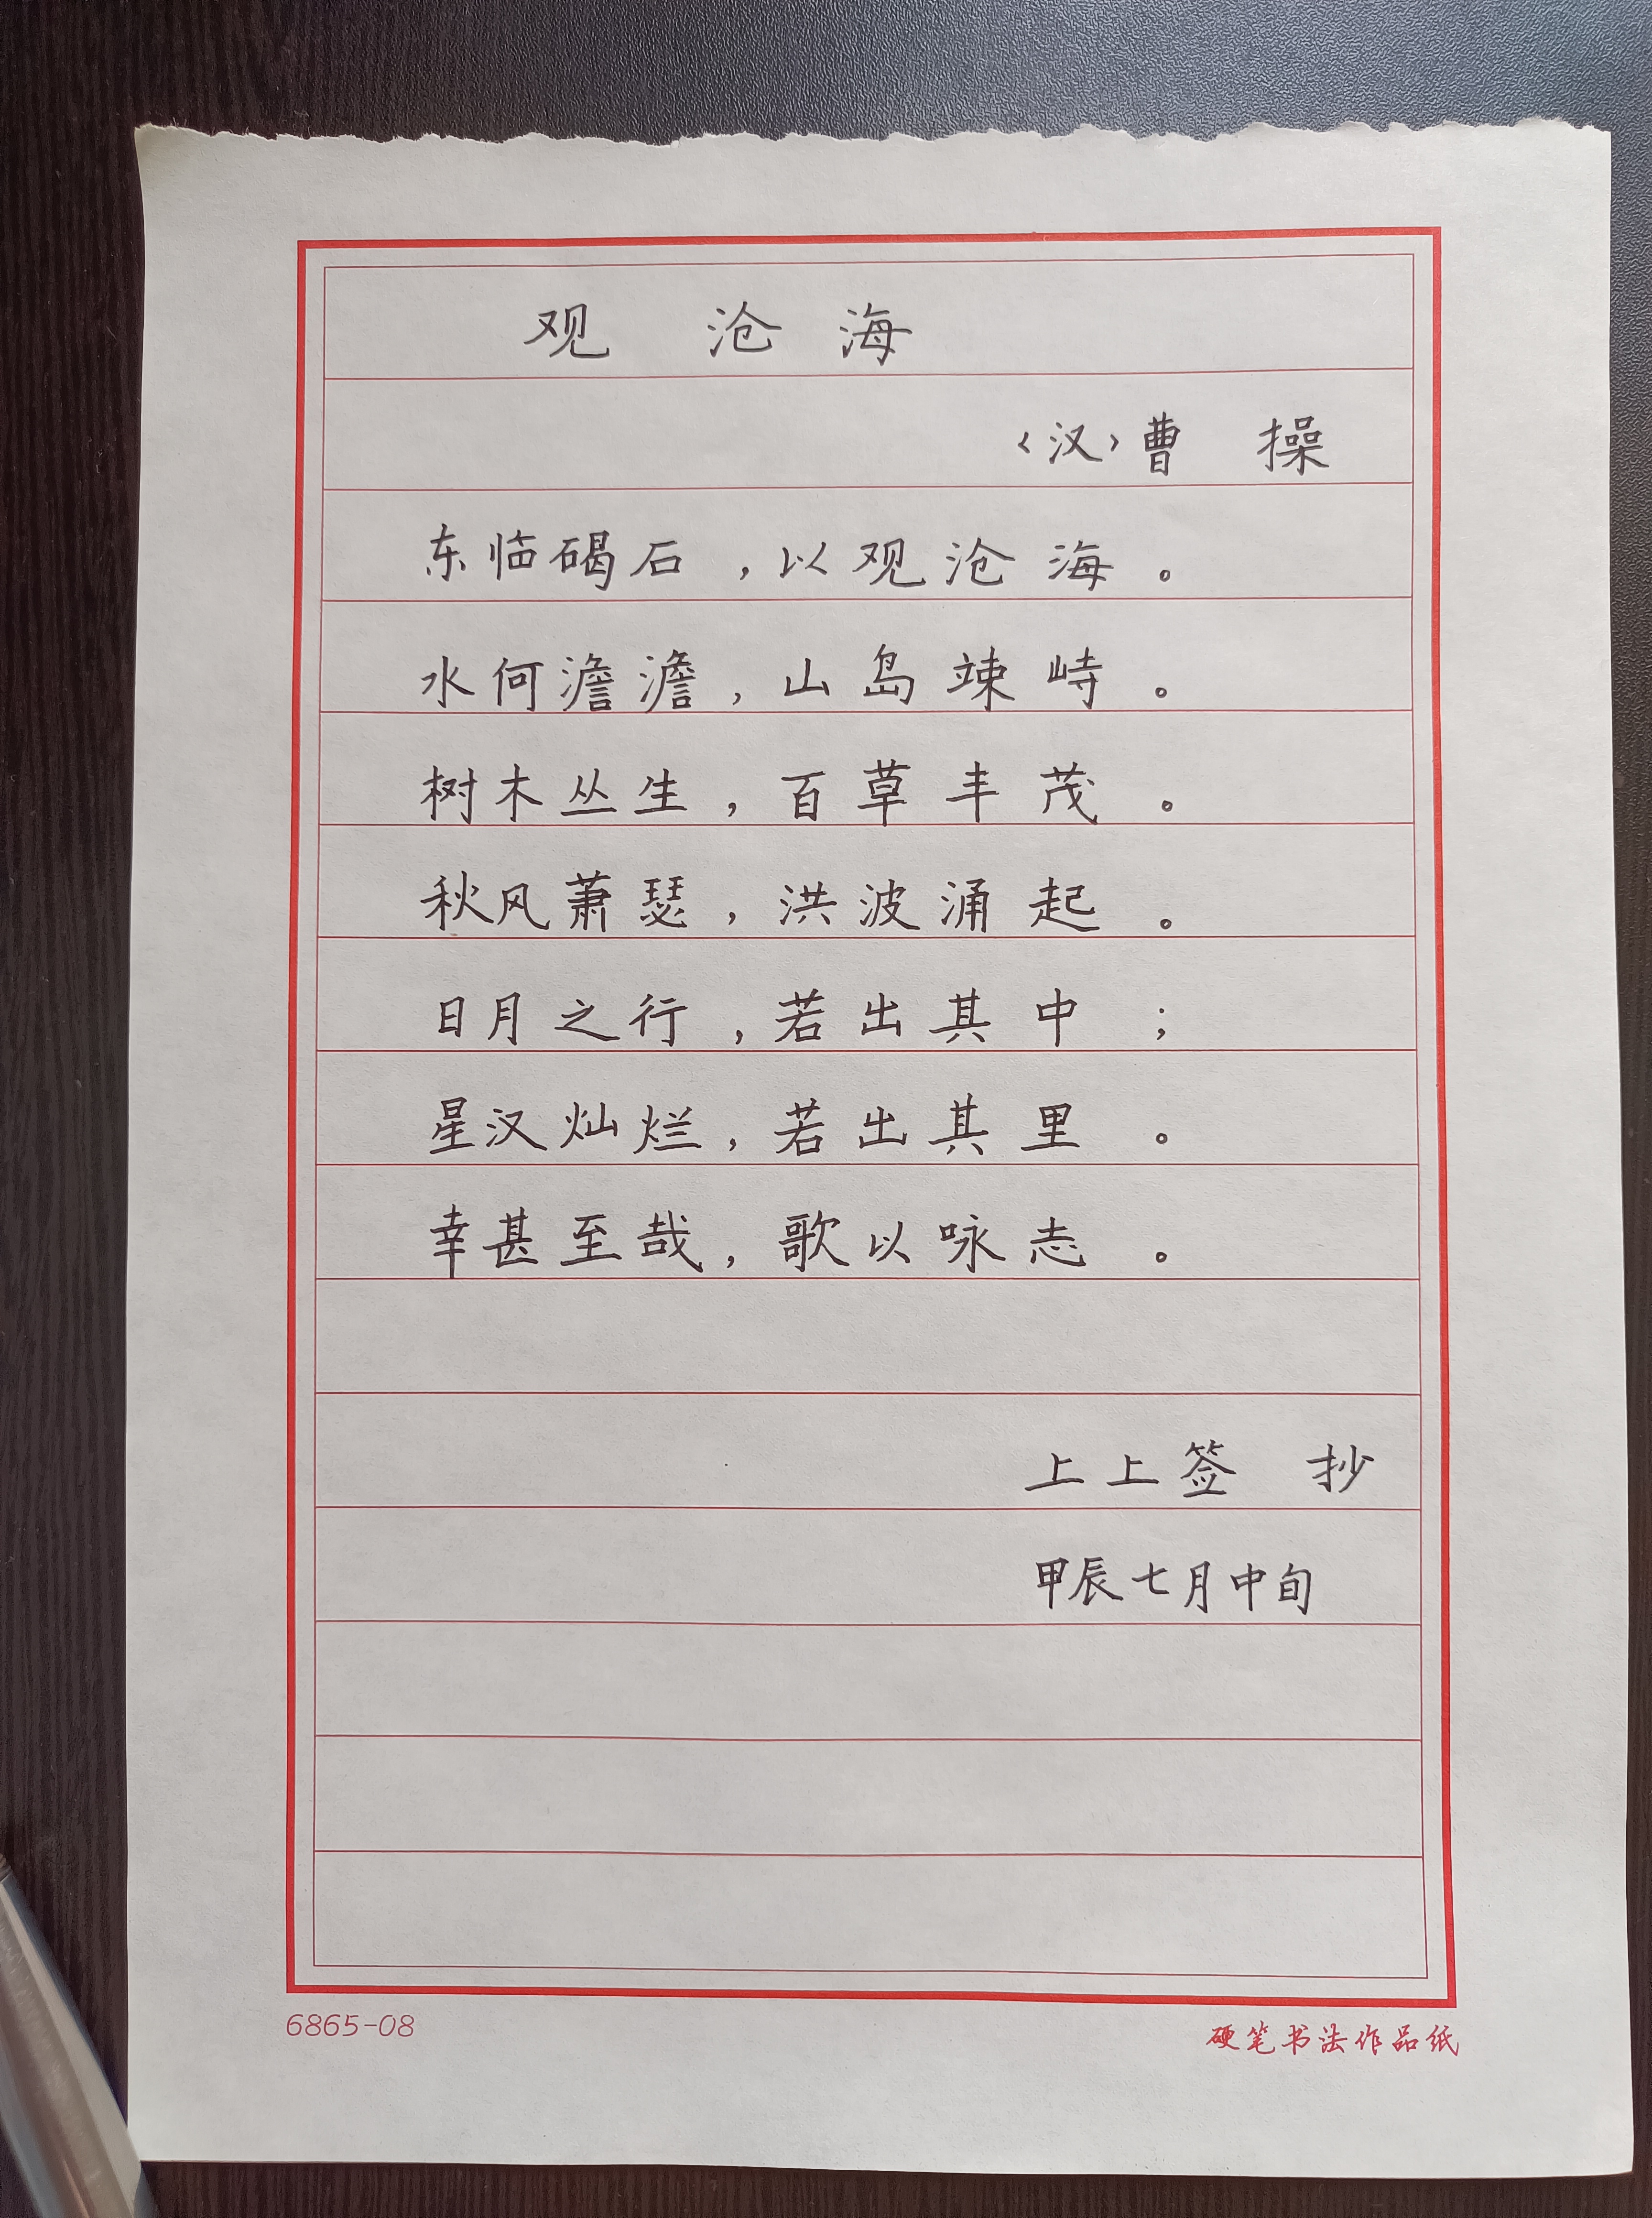 观 沧 海
〈汉〉曹 操
东临碣石，以观沧海。
水何澹澹，山岛竦峙。
树木丛生，百草丰茂。
秋风萧瑟，洪波涌起。
日月之行，若出其中；
星汉灿烂，若出其里。
幸甚至哉，歌以咏志。
上上签 抄
甲辰七月中旬
6865-08
硬笔书法作品纸